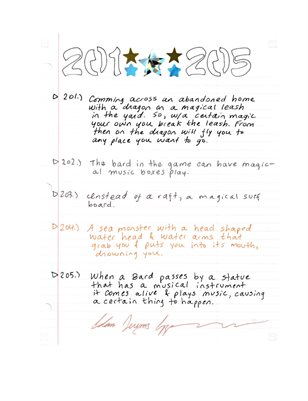 201 205
201.) Comming across an abandoned home
with a dragon on a magical leash
in the yard. So, w/a certain magic
your own you break the leash. From
then on the dragon will fly you to
any place you want to go.
202.) The bard in the game can have magic-
al music boxes play.
203.) Instead of a raft, a magical surf
board.
204.) A sea monster with a head shaped
water head & water arms that
grab you & puts you into its mouth,
drowning you.
205.) When a Bard passes by a statue
that has a musical instrument
it comes alive & plays music, causing
a certain thing to happen.